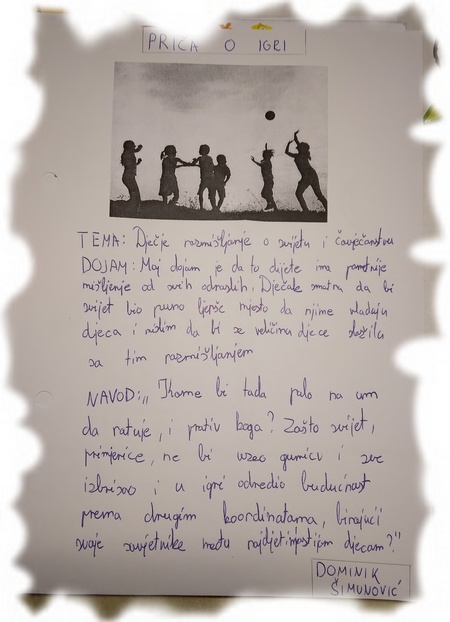 PRIČA O IGRI
TEMA: Dječje razmišljanje o svijetu i čovječanstvu
DOJAM: Moj dojam je da to dijete ima pametnije
mišljenje od svih odraslih. Dječak smatra da bi
svijet bio puno ljepše mjesto da njime vladaju
djeca i mislim da bi se većina djece složila
sa tim razmišljanjem
NAVOD: ,, Kome bi tada palo na um
da ratuje, i protiv koga? Zašto svijet,
primjerice, ne bi uzeo gumicu i sve
izbrisao i u igri odredio budućnost
prema drugim koordinatama, birajući
svoje savjetnike među najdjetinjastijom djecom?"
DOMINIK
ŠIMUNOVIĆ